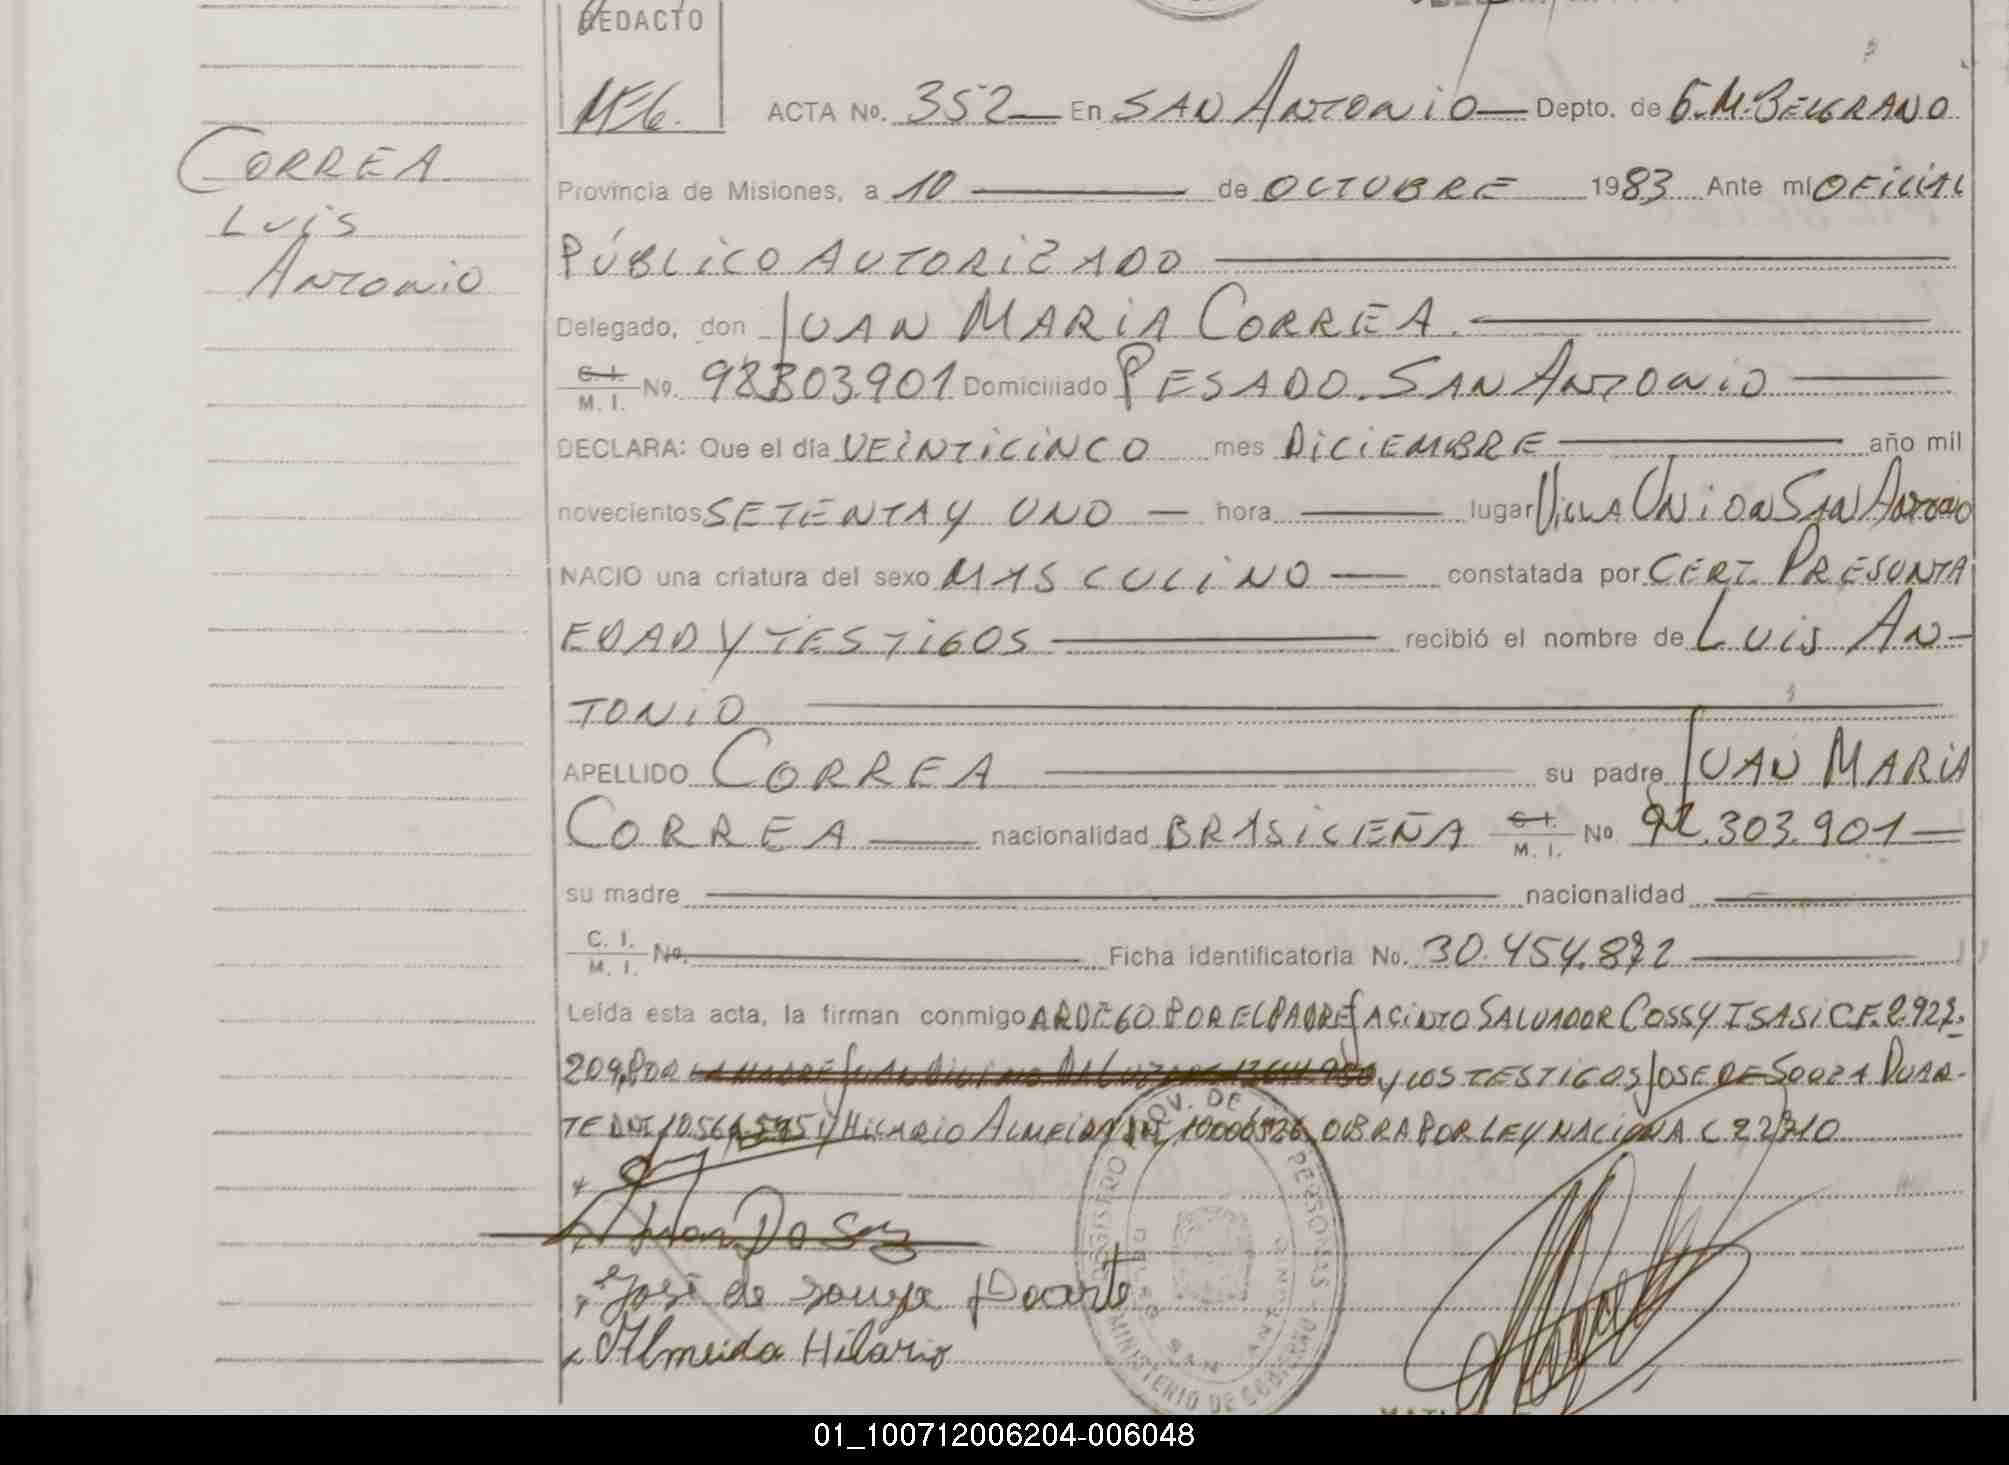 REDACTO
ACTA No. 352 En SAN ANTONIO Depto. de G.M. BELGRANO
CORREA
LUIS
ANTONIO
Provincia de Misiones, a 10 de OCTUBRE 1983 Ante mí OFICIAL
PÚBLICO AUTORIZADO
Delegado, don JUAN MARIA CORREA.
C. I. / M. I. No. 92303.901 Domiciliado PESADO. SAN ANTONIO
DECLARA: Que el día VEINTICINCO mes DICIEMBRE año mil
novecientos SETENTA Y UNO hora lugar VILLA UNION SAN ANTONIO
NACIO una criatura del sexo MASCULINO constatada por CERT. PRESUNTA
EDAD Y TESTIGOS recibió el nombre de LUIS AN-
TONIO
APELLIDO CORREA su padre JUAN MARIA
CORREA nacionalidad BRASILEÑA C. I. / M. I. No. 92.303.901
su madre nacionalidad
C. I. / M. I. No. Ficha identificatoria No. 30.454.872
Leída esta acta, la firman conmigo A RUEGO POR EL PADRE JACINTO SALVADOR COSSY ISASI C.F. 2.927.
209, POR LA MADRE JUAN y LOS TESTIGOS JOSE DE SOUZA DUAR-
TE DNI Y HILARIO ALMEIDA 10006526, OBRA POR LEY NACIONAL 22710
Juan Da
José de Souza Duarte
Almeida Hilario
REGISTRO PROV. DE PERSONAS
MINISTERIO DE GOBIERNO
SAN ANTONIO
01_100712006204-006048